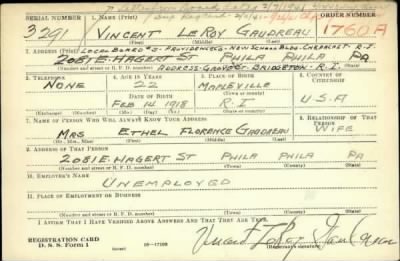 SERIAL NUMBER
1. NAME (Print)
ORDER NUMBER
3291
VINCENT LEROY GAUDREAU
1760A
(First) (Middle) (Last)
2. ADDRESS (Print)
LOCAL BOARD #3-PROVIDENCE-NEW SCHOOL BLDG. CHEPACHET R.I.
2081 E. HAGERT ST PHILA PHILA PA
(Number and street or R. F. D. number) (Town) (County) (State)
3. TELEPHONE
4. AGE IN YEARS
5. PLACE OF BIRTH
6. COUNTRY OF CITIZENSHIP
NONE
22
MAPLEVILLE
DATE OF BIRTH
FEB 14 1918
R.I
U.S.A
7. NAME OF PERSON WHO WILL ALWAYS KNOW YOUR ADDRESS
RELATIONSHIP OF THAT PERSON
MRS ETHEL FLORENCE GAUDREAU
WIFE
(Mr., Mrs., Miss) (First) (Middle) (Last)
9. ADDRESS OF THAT PERSON
2081 E. HAGERT ST PHILA PHILA PA
(Number and street or R. F. D. number) (Town) (County) (State)
10. EMPLOYER'S NAME
UNEMPLOYED
11. PLACE OF EMPLOYMENT OR BUSINESS
(Number and street or R. F. D. number) (Town) (County) (State)
I AFFIRM THAT I HAVE VERIFIED ABOVE ANSWERS AND THAT THEY ARE TRUE.
REGISTRATION CARD
D. S. S. Form 1
(over)
Vincent LeRoy Gaudreau
(Registrant's signature)